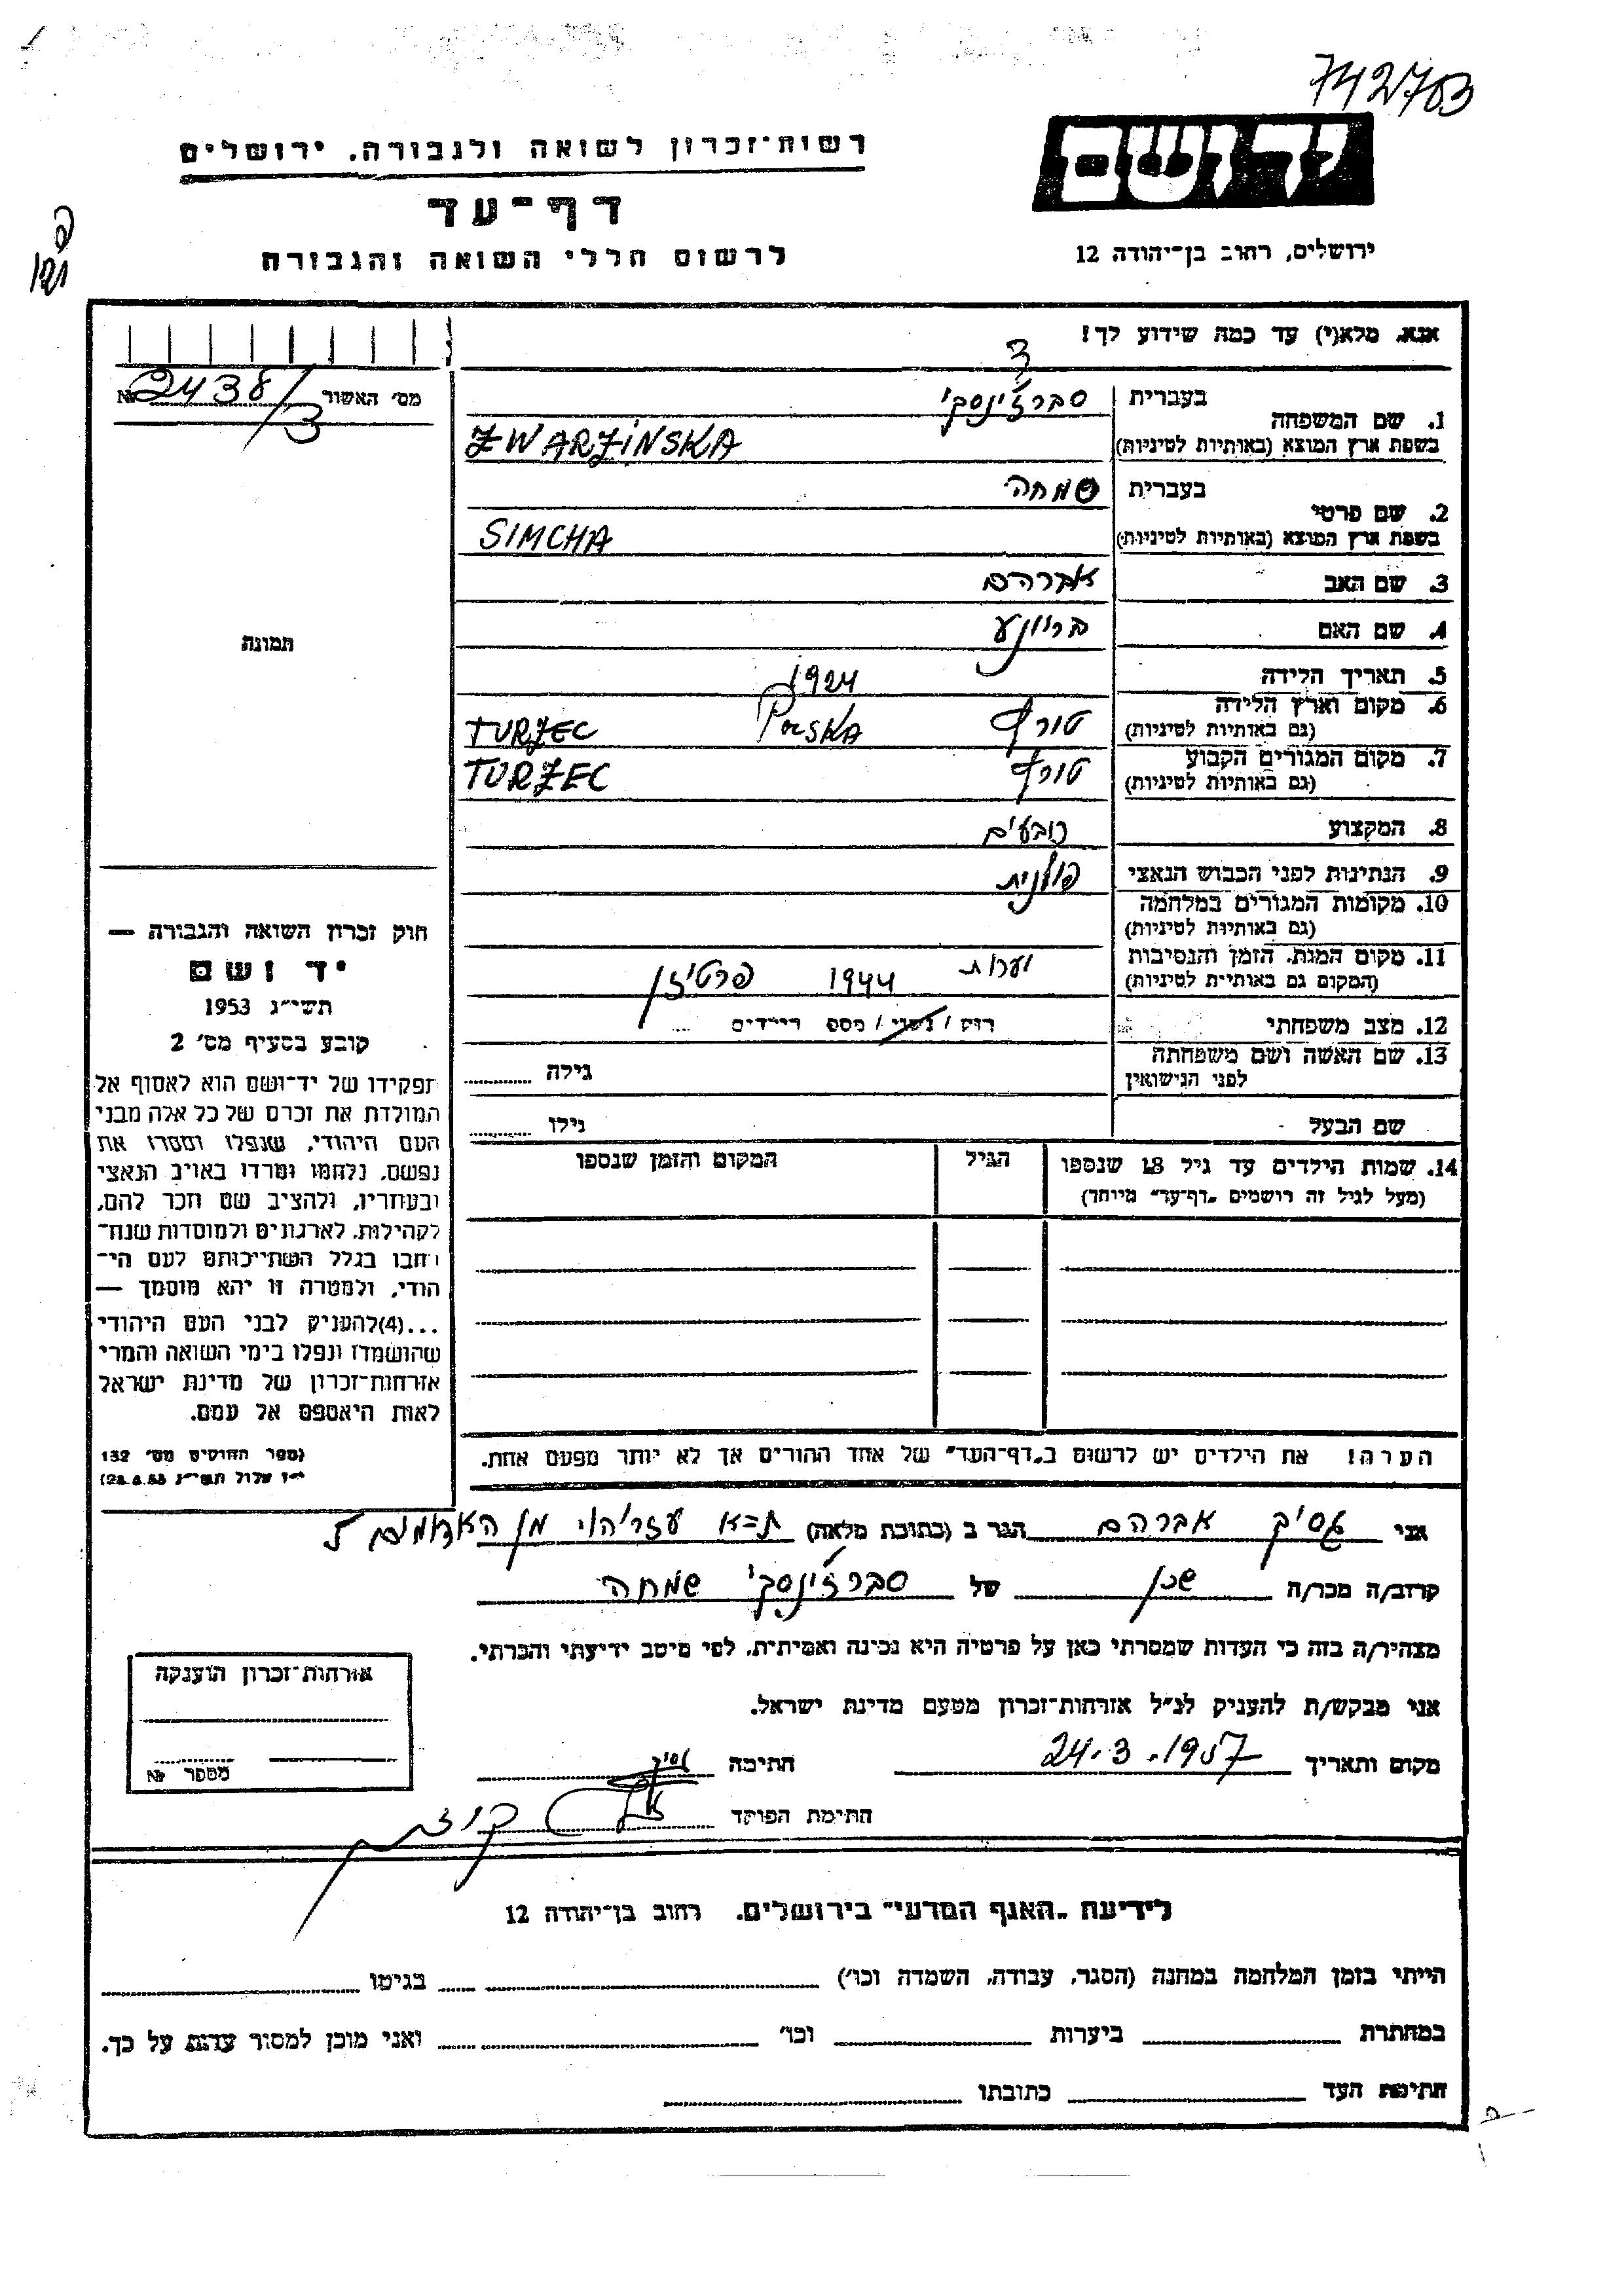 742703
יד ושם
רשות־זכרון לשואה ולגבורה, ירושלים
דף־עד
לרשום חללי השואה והגבורה
ירושלים, רחוב בן־יהודה 12
אנא, מלא(י) עד כמה שידוע לך!
מס' האשור № 2438/3
1. שם המשפחה בעברית סברז'ינסקי
בשפת ארץ המוצא (באותיות לטיניות) ZWARZINSKA
2. שם פרטי בעברית שמחה
בשפת ארץ המוצא (באותיות לטיניות) SIMCHA
3. שם האב אברהם
4. שם האם
תמונה
5. תאריך הלידה 1924
6. מקום וארץ הלידה
(גם באותיות לטיניות) טורץ POLSKA TURZEC
7. מקום המגורים הקבוע
(גם באותיות לטיניות) טורץ TURZEC
8. המקצוע כובעים
9. הנתינות לפני הכבוש הנאצי פולנית
10. מקומות המגורים במלחמה
(גם באותיות לטיניות)
11. מקום המות, הזמן והנסיבות
(המקום גם באותיות לטיניות) יערות 1944 פרטיזן
12. מצב משפחתי רוק / נשוי / מספר הילדים
13. שם האשה ושם משפחתה
לפני הנישואין גילה
שם הבעל גילו
14. שמות הילדים עד גיל 18 שנספו הגיל המקום והזמן שנספו
(מעל לגיל זה רושמים „דף־עד" מיוחד)
הערה! את הילדים יש לרשום ב„דף־העד" של אחד ההורים אך לא יותר מפעם אחת.
חוק זכרון השואה והגבורה —
יד ושם
תשי"ג 1953
קובע בסעיף מס' 2
תפקידו של יד־ושם הוא לאסוף אל
המולדת את זכרם של כל אלה מבני
העם היהודי, שנפלו ומסרו את
נפשם, נלחמו ומרדו באויב הנאצי
ובעוזריו, ולהציב שם וזכר להם,
לקהילות, לארגונים ולמוסדות שנח־
רבו בגלל השתייכותם לעם הי־
הודי, ולמטרה זו יהא מוסמך —
...(4) להעניק לבני העם היהודי
שהושמדו ונפלו בימי השואה והמרי
אזרחות־זכרון של מדינת ישראל
לאות היאספם אל עמם.
(ספר החוקים מס' 132
י"ז אלול תשי"ג 28.8.53)
אני אסיק אברהם הגר ב (כתובת מלאה) ת"א עזריה מן האדומים 5
קרוב/ה מכר/ה שכן של סברז'ינסקי שמחה
מצהיר/ה בזה כי העדות שמסרתי כאן על פרטיה היא נכונה ואמיתית, לפי מיטב ידיעתי והכרתי.
אני מבקש/ת להעניק לנ"ל אזרחות־זכרון מטעם מדינת ישראל.
מקום ותאריך 24.3.1957 חתימה
חתימת הפוקד
אזרחות־זכרון הוענקה
מספר №
לידיעת „האגף המדעי" בירושלים, רחוב בן־יהודה 12
הייתי בזמן המלחמה במחנה (הסגר, עבודה, השמדה וכו') בגיטו
במחתרת ביערות וכו' ואני מוכן למסור עדות על כך.
חתימת העד כתובתו